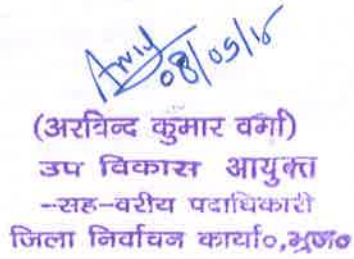 08/05/18
(अरविन्द कुमार वर्मा)
उप विकास आयुक्त
--सह-वरीय पदाधिकारी
जिला निर्वाचन कार्या०,